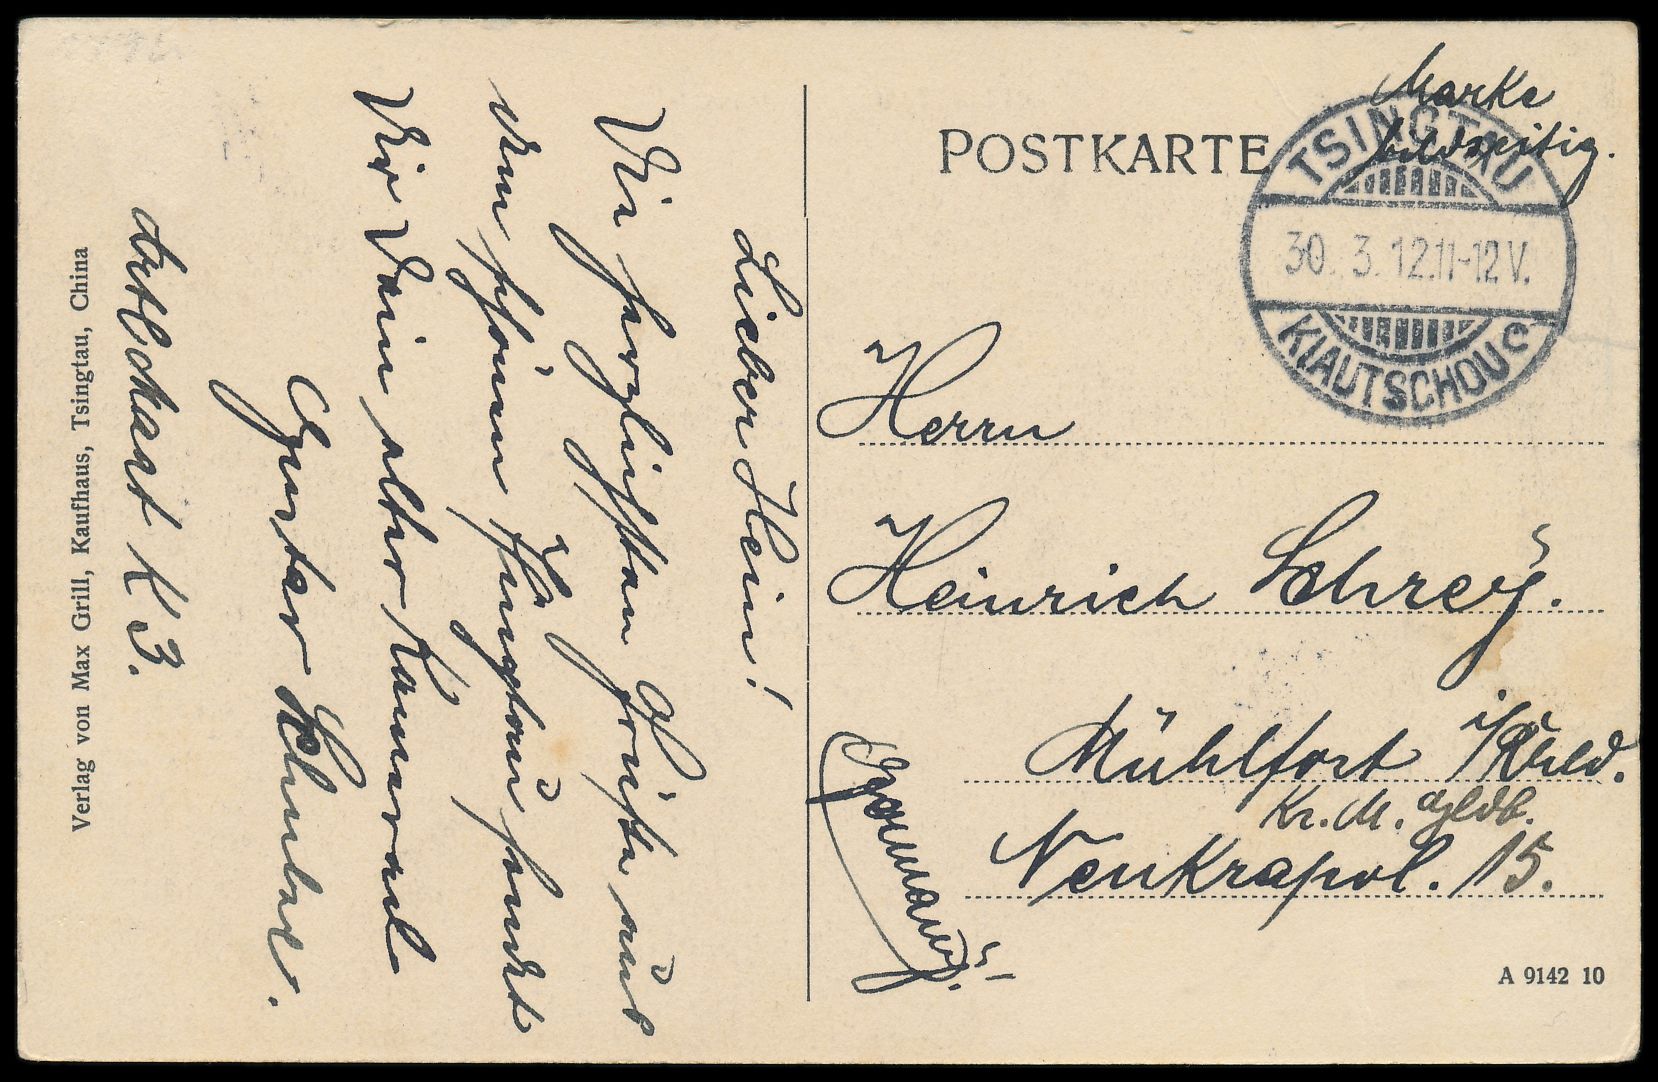 POSTKARTE
Marke
bildseitig.
TSINGTAU
30. 3. 12. 11-12 V.
KIAUTSCHOU C
Herrn
Heinrich Schrey.
Mühlfort i/Rhld.
Kr. M. Gldb.
Neukrapol. 15.
Germany.
A 9142 10
Lieber Hein!
Die herzlichsten Grüße aus
dem schönen Tsingtau sendet
Dir Dein alter Kamerad
K 3.
Verlag von Max Grill, Kaufhaus, Tsingtau, China